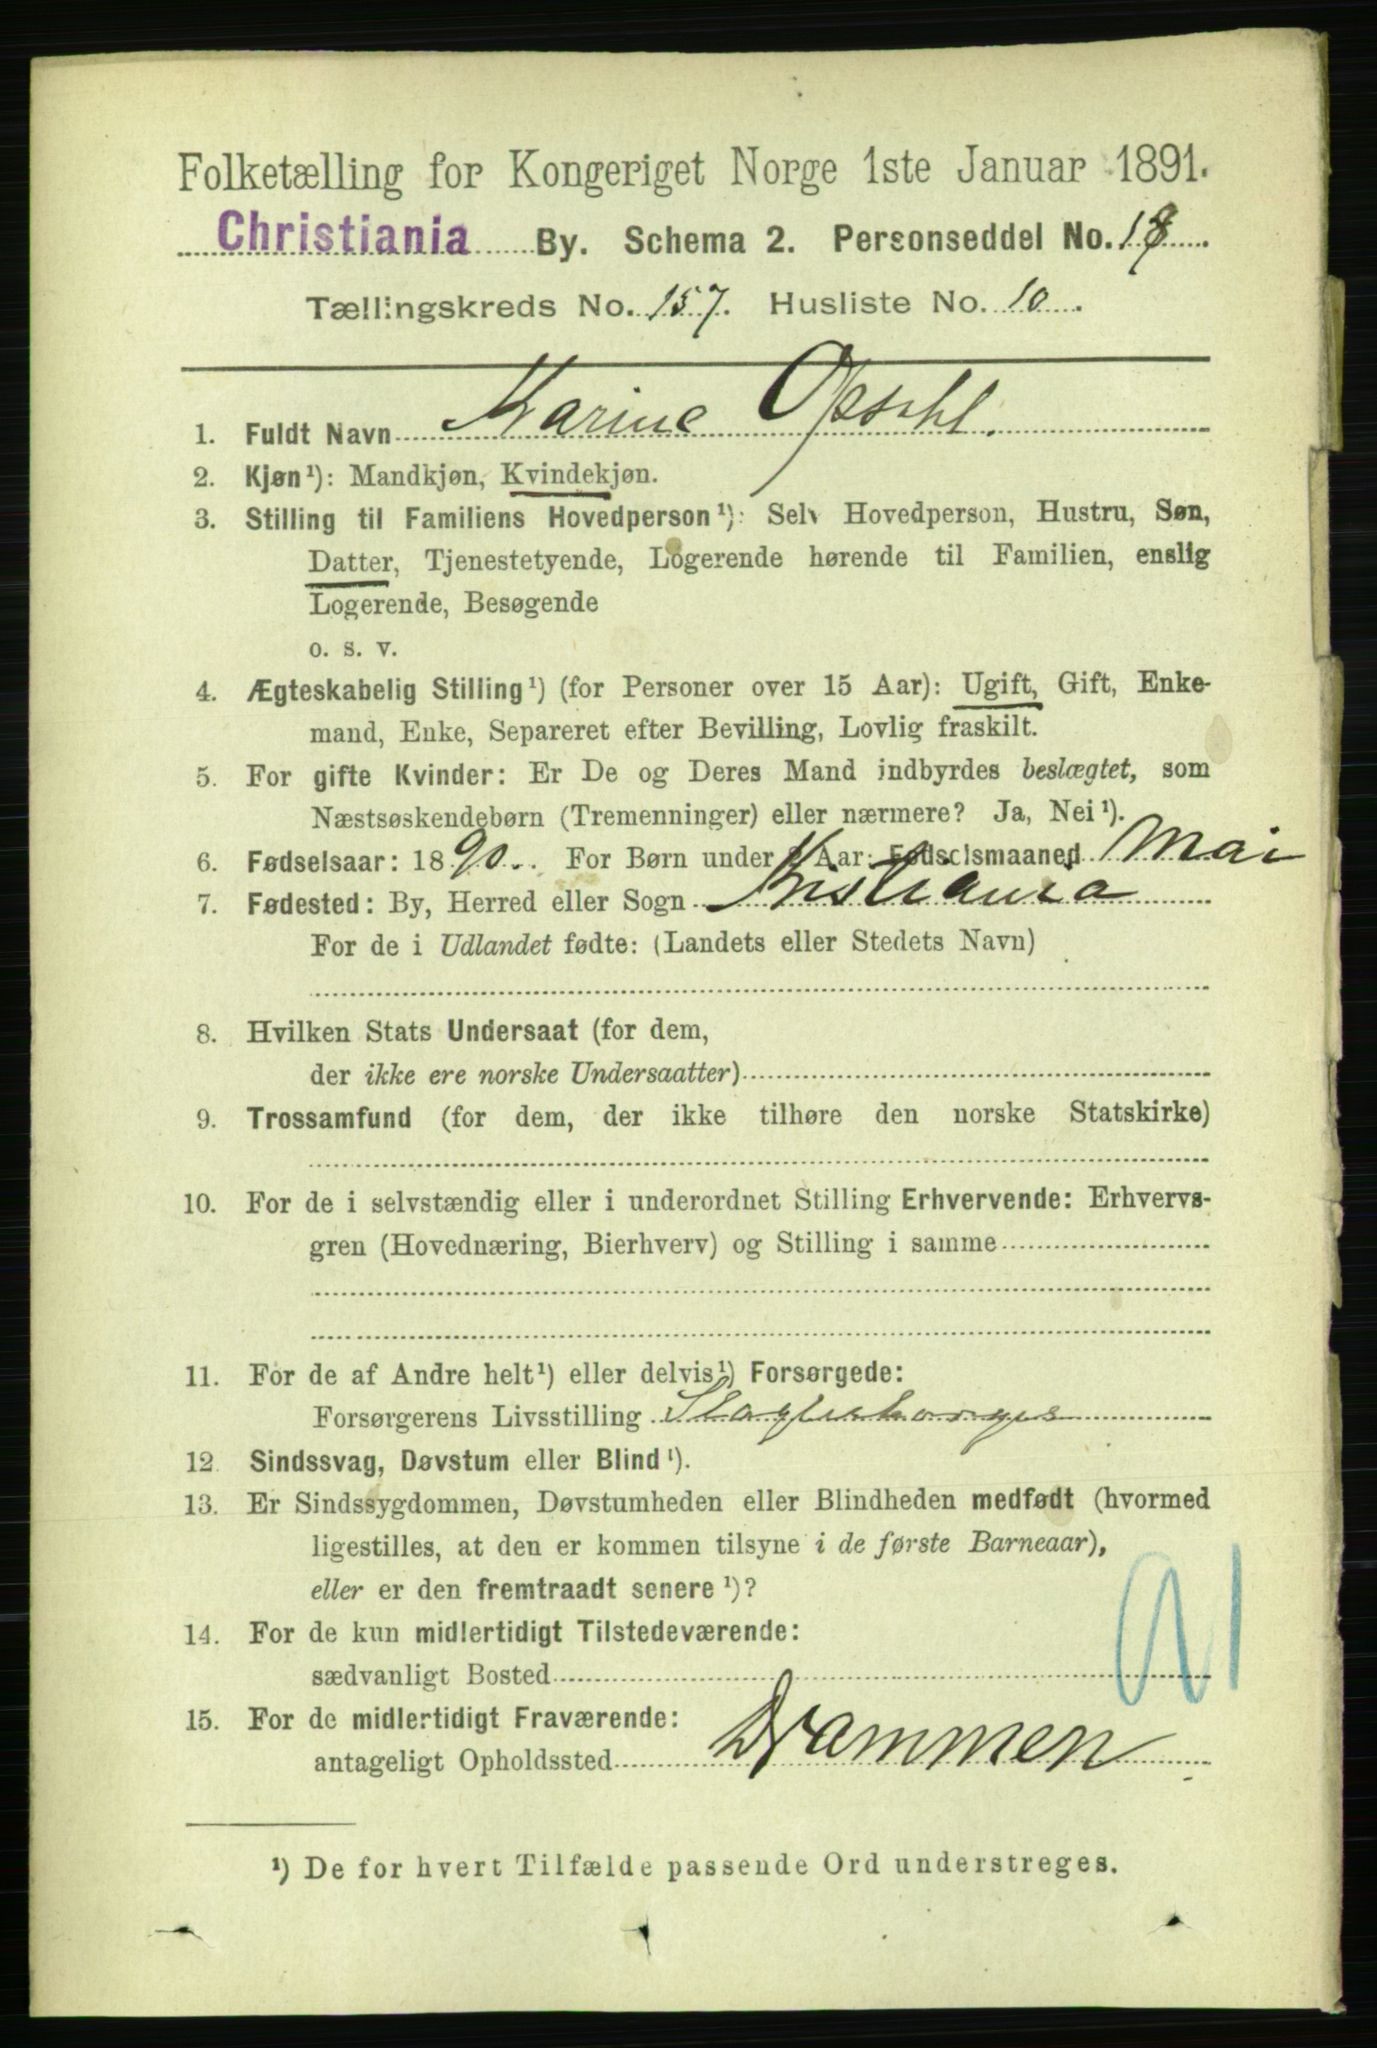 Folketælling for Kongeriget Norge 1ste Januar 1891.
Christiania By. Schema 2. Personseddel No. 18
Tællingskreds No. 157. Husliste No. 10
1. Fuldt Navn Karine Opsahl.
2. Kjøn¹): Mandkjøn, Kvindekjøn.
3. Stilling til Familiens Hovedperson¹): Selv Hovedperson, Hustru, Søn,
Datter, Tjenestetyende, Logerende hørende til Familien, enslig
Logerende, Besøgende
o. s. v.
4. Ægteskabelig Stilling¹) (for Personer over 15 Aar): Ugift, Gift, Enke-
mand, Enke, Separeret efter Bevilling, Lovlig fraskilt.
5. For gifte Kvinder: Er De og Deres Mand indbyrdes beslægtet, som
Næstsøskendebørn (Tremenninger) eller nærmere? Ja, Nei¹).
6. Fødselsaar: 1890. For Børn under Aar: Fødselsmaaned Mai
7. Fødested: By, Herred eller Sogn Kristiania
For de i Udlandet fødte: (Landets eller Stedets Navn)
8. Hvilken Stats Undersaat (for dem,
der ikke ere norske Undersaatter)
9. Trossamfund (for dem, der ikke tilhøre den norske Statskirke)
10. For de i selvstændig eller i underordnet Stilling Erhvervende: Erhvervs-
gren (Hovednæring, Bierhverv) og Stilling i samme
11. For de af Andre helt¹) eller delvis¹) Forsørgede:
Forsørgerens Livsstilling
12. Sindssvag, Døvstum eller Blind¹).
13. Er Sindssygdommen, Døvstumheden eller Blindheden medfødt (hvormed
ligestilles, at den er kommen tilsyne i de første Barneaar),
eller er den fremtraadt senere¹)?
14. For de kun midlertidigt Tilstedeværende:
sædvanligt Bosted
15. For de midlertidigt Fraværende:
antageligt Opholdssted Drammen
¹) De for hvert Tilfælde passende Ord understreges.